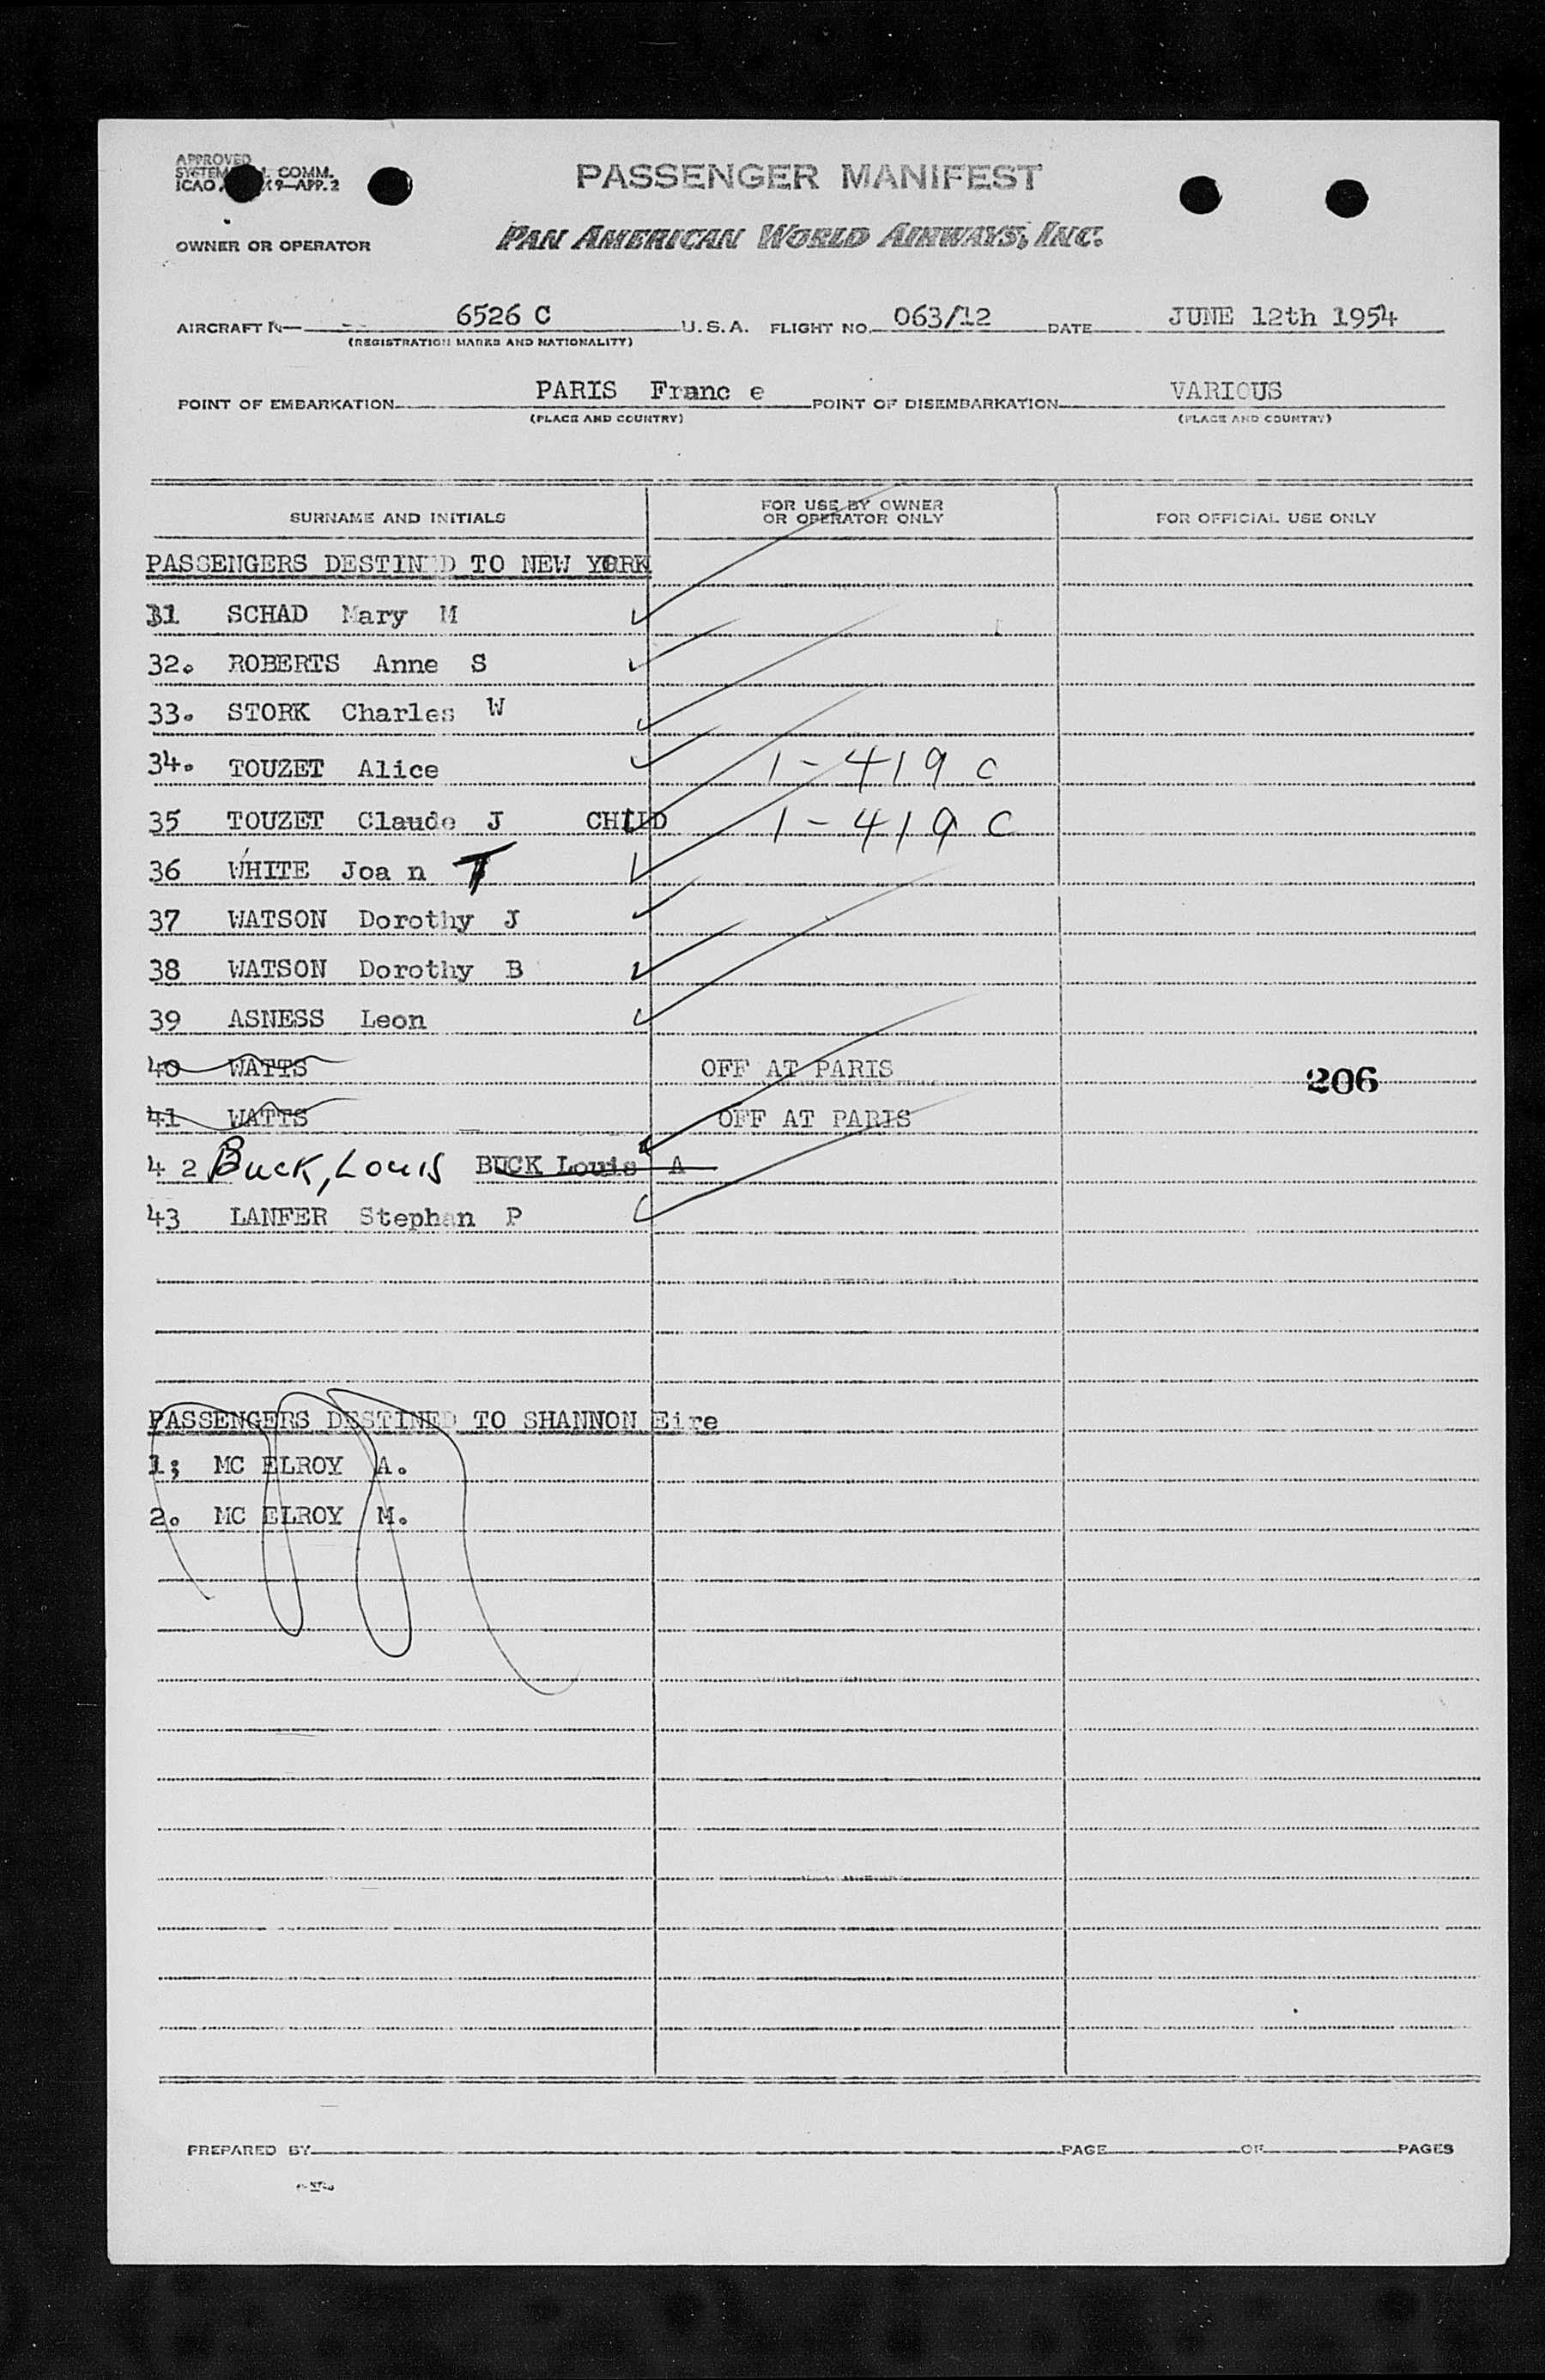 APPROVED
SYSTEM COMM.
ICAO 9—APP. 2
PASSENGER MANIFEST
OWNER OR OPERATOR PAN AMERICAN WORLD AIRWAYS, INC.
AIRCRAFT N— 6526 C U. S. A. FLIGHT NO. 063/12 DATE JUNE 12th 1954
(REGISTRATION MARKS AND NATIONALITY)
POINT OF EMBARKATION PARIS Franc e POINT OF DISEMBARKATION VARIOUS
(PLACE AND COUNTRY) (PLACE AND COUNTRY)
SURNAME AND INITIALS FOR USE BY OWNER OR OPERATOR ONLY FOR OFFICIAL USE ONLY
PASSENGERS DESTINED TO NEW YORK
31 SCHAD Mary M
32. ROBERTS Anne S
33. STORK Charles W
34. TOUZET Alice 1-419 C
35 TOUZET Claude J CHILD 1-419 C
36 WHITE Joa n T
37 WATSON Dorothy J
38 WATSON Dorothy B
39 ASNESS Leon
40 WATTS OFF AT PARIS 206
41 WATTS OFF AT PARIS
4 2 Buck, Louis BUCK Louis A
43 LANFER Stephan P
PASSENGERS DESTINED TO SHANNON Eire
1; MC ELROY A.
2. MC ELROY M.
PREPARED BY PAGE OF PAGES